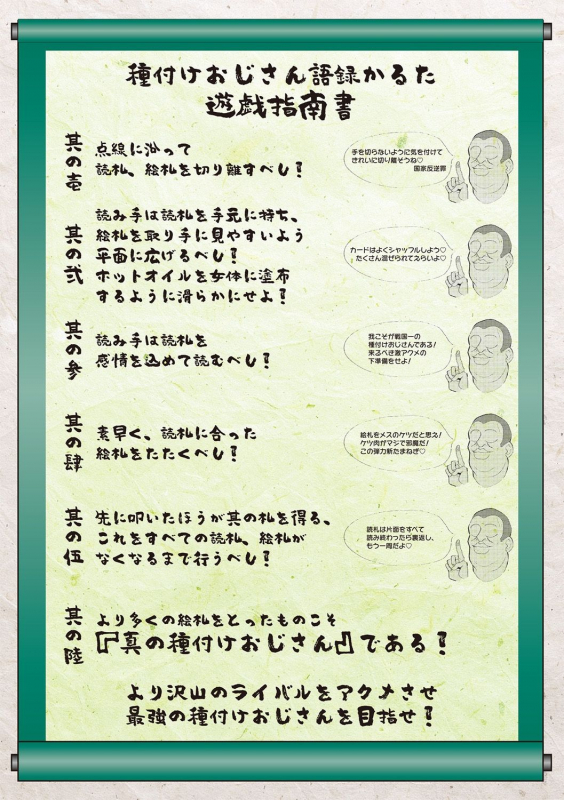 種付けおじさん語録かるた
遊戯指南書
其の壱
点線に沿って
読札、絵札を切り離すべし！
手を切らないように気を付けて
きれいに切り離そうね♡
国家反逆罪
其の弐
読み手は読札を手元に持ち、
絵札を取り手に見やすいよう
平面に広げるべし！
ホットオイルを女体に塗布
するように滑らかにせよ！
カードはよくシャッフルしよう♡
たくさん混ぜられてえらいよ♡
其の参
読み手は読札を
感情を込めて読むべし！
我こそが戦国一の
種付けおじさんである！
来るべき激アクメの
下準備をせよ！
其の肆
素早く、読札に合った
絵札をたたくべし！
絵札をメスのケツだと思え！
ケツ肉がマジで邪魔だ！
この弾力新たまねぎ♡
其の伍
先に叩いたほうが其の札を得る、
これをすべての読札、絵札が
なくなるまで行うべし！
読札は片面をすべて
読み終わったら裏返し、
もう一周だよ♡
其の陸
より多くの絵札をとったものこそ
『真の種付けおじさん』である！
より沢山のライバルをアクメさせ
最強の種付けおじさんを目指せ！